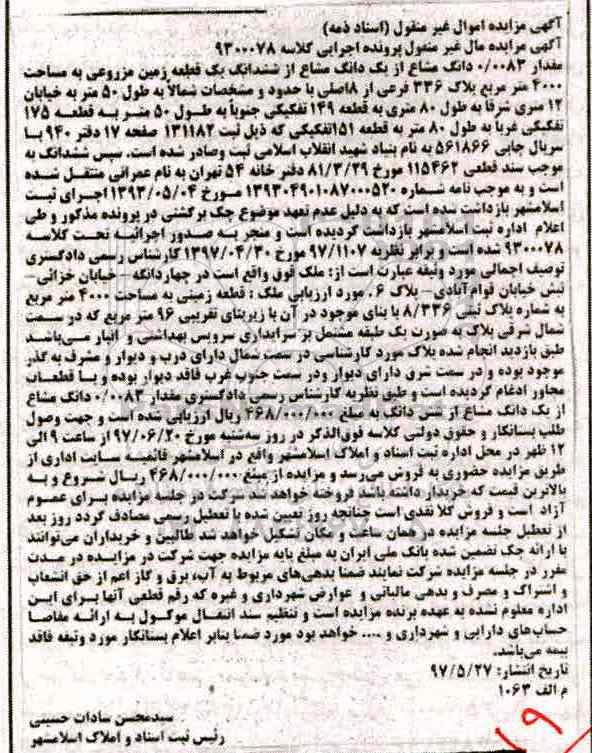 آگهی مزایده اموال غیر منقول (اسناد ذمه)
آگهی مزایده مال غیر منقول پرونده اجرایی کلاسه ۹۳۰۰۰۷۸
مقدار ۰/۰۰۸۳ دانگ مشاع از یک دانگ مشاع از ششدانگ یک قطعه زمین مزروعی به مساحت
۴۰۰۰ متر مربع پلاک ۳۳۶ فرعی از ۸اصلی با حدود و مشخصات شمالا به طول ۵۰ متر به خیابان
۱۲ متری شرقا به طول ۸۰ متری به قطعه ۱۴۹ تفکیکی جنوبا به طول ۵۰ متر به قطعه ۱۷۵
تفکیکی غربا به طول ۸۰ متر به قطعه ۱۵۱تفکیکی که ذیل ثبت ۱۳۱۱۸۲ صفحه ۱۷ دفتر ۹۴۰ با
سریال چاپی ۵۶۱۸۶۶ به نام بنیاد شهید انقلاب اسلامی ثبت وصادر شده است. سپس ششدانگ به
موجب سند قطعی ۱۱۵۴۶۲ مورخ ۸۱/۳/۲۹ دفتر خانه ۵۴ تهران به نام عمرانی منتقل شده
است و به موجب نامه شماره ۱۳۹۳۰۴۹۰۱۰۸۷۰۰۰۵۲۰ مورخ ۱۳۹۳/۰۵/۰۴ اجرای ثبت
اسلامشهر بازداشت شده است که به دلیل عدم تعهد موضوع چک برگشتی در پرونده مذکور و طی
اعلام اداره ثبت اسلامشهر بازداشت گردیده است و منجر به صدور اجرائیه تحت کلاسه
۹۳۰۰۰۷۸ شده است و برابر نظریه ۹۷/۱۱۰۷ مورخ ۱۳۹۷/۰۴/۳۰ کارشناس رسمی دادگستری
توصیف اجمالی مورد وثیقه عبارت است از: ملک فوق واقع است در چهاردانگه–خیابان خزائی–
نبش خیابان قوام آبادی– پلاک ۶. مورد ارزیابی ملک : قطعه زمینی به مساحت ۴۰۰۰ متر مربع
به شماره پلاک ثبتی ۸/۳۳۶ با بنای موجود در آن با زیربنای تقریبی ۹۶ متر مربع که در سمت
شمال شرقی پلاک به صورت یک طبقه مشتمل بر سرایداری سرویس بهداشتی و انبار می‌باشد
طبق بازدید انجام شده پلاک مورد کارشناسی در سمت شمال دارای درب و دیوار و مشرف به گذر
موجود بوده و در سمت شرق دارای دیوار ودر سمت جنوب غرب فاقد دیوار بوده و با قطعات
مجاور ادغام گردیده است و طبق نظریه کارشناس رسمی دادگستری مقدار ۰/۰۰۸۳ دانگ مشاع
از یک دانگ مشاع از شش دانگ به مبلغ ۴۶۸/۰۰۰/۰۰۰ ریال ارزیابی شده است و جهت وصول
طلب بستانکار و حقوق دولتی کلاسه فوق‌الذکر در روز سه‌شنبه مورخ ۹۷/۰۶/۲۰ از ساعت ۹ الی
۱۲ ظهر در محل اداره ثبت اسناد و املاک اسلامشهر واقع در اسلامشهر قائمیه سایت اداری از
طریق مزایده حضوری به فروش می‌رسد و مزایده از مبلغ ۴۶۸/۰۰۰/۰۰۰ ریال شروع و به
بالاترین قیمت که خریدار داشته باشد فروخته خواهد شد شرکت در جلسه مزایده برای عموم
آزاد است و فروش کلا نقدی است چنانچه روز تعیین شده با تعطیل رسمی مصادف گردد روز بعد
از تعطیل جلسه مزایده در همان ساعت و مکان تشکیل خواهد شد طالبین و خریداران می‌توانند
با ارائه چک تضمین شده بانک ملی ایران به مبلغ پایه مزایده جهت شرکت در مزایده در مدت
مقرر در جلسه مزایده شرکت نمایند ضمنا بدهی‌های مربوط به آب، برق و گاز اعم از حق انشعاب
و اشتراک و مصرف و بدهی مالیاتی و عوارض شهرداری و غیره که رقم قطعی آنها برای این
اداره معلوم نشده به عهده برنده مزایده است و تنظیم سند انتقال موکول به ارائه مفاصا
حساب‌های دارایی و شهرداری و .... خواهد بود مورد ضمنا بنابر اعلام بستانکار مورد وثیقه فاقد
بیمه می‌باشد.
تاریخ انتشار: ۹۷/۵/۲۷
م الف ۱۰۶۳
سیدمحسن سادات حسینی
رئیس ثبت اسناد و املاک اسلامشهر
۱۹